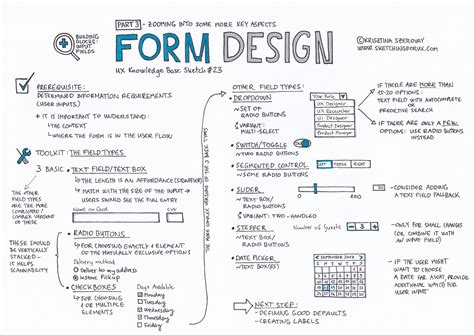 PART 3 - ZOOMING INTO SOME MORE KEY ASPECTS
BUILDING
BLOCKS:
INPUT
FIELDS
FORM DESIGN
UX Knowledge Base Sketch #23
© KRISZTINA SZEROVAY
WWW.SKETCHINGFORUX.COM
PREREQUISITE:
DETERMINED INFORMATION REQUIREMENTS
(USER INPUTS)
+ IT IS IMPORTANT TO UNDERSTAND:
THE CONTEXT
WHERE THE FORM IS IN THE USER FLOW
TOOLKIT: THE FIELD TYPES
3 BASIC
TEXT FIELD/TEXT BOX
THE LENGTH IS AN AFFORDANCE (SIGNIFIER)
→ MATCH WITH THE SIZE OF THE INPUT →
USERS SHOULD SEE THE FULL ENTRY
Name on Card
CVV
THE OTHER
FIELD TYPES
ARE THE
MORE
COMPLEX/
COMBINED
VERSIONS OF
THESE
RADIO BUTTONS
FOR CHOOSING EXACTLY 1 ELEMENT
OF THE MUTUALLY EXCLUSIVE OPTIONS
Delivery method
Deliver to my address
Instore Pickup
THESE
SHOULD BE
VERTICALLY
STACKED -
IT HELPS
SCANNABILITY
CHECKBOXES
FOR CHOOSING
0 OR MULTIPLE
ELEMENTS
Days Available
Monday
Tuesday
Wednesday
Thursday
Friday
THE MORE COMPLEX VERSIONS OF THE 3 BASIC TYPES
OTHER FIELD TYPES:
DROPDOWN
~ SET OF
RADIO
BUTTONS
VARIANT:
MULTI-SELECT
Your Role
UX Designer
UI Designer
Product Designer
Product Manager
IF THERE ARE MORE THAN
15-20 OPTIONS:
TEXT FIELD WITH AUTOCOMPLETE
OR
PREDICTIVE SEARCH
IF THERE ARE ONLY A FEW
OPTIONS: USE RADIO BUTTONS
INSTEAD
SWITCH/TOGGLE
~ TWO RADIO BUTTONS
SEGMENTED CONTROL
~ SET OF RADIO BUTTONS
LEFT MIDDLE RIGHT
SLIDER
~ TEXT BOX/
RADIO BUTTONS
VARIANT: TWO-HANDLED
CONSIDER ADDING
A TEXT FIELD FALLBACK
STEPPER
~ TEXT BOX
Number of Guests
3
ONLY FOR SMALL CHANGES
(OR COMBINE IT WITH
AN INPUT FIELD)
DATE PICKER
~ TEXT BOX(ES)
IF THE USER MIGHT
WANT TO CHOOSE
A DATE FAR AHEAD,
PROVIDE AN ADDITIONAL
INPUT FIELD FOR THIS
NEXT STEP:
- DEFINING GOOD DEFAULTS
- CREATING LABELS